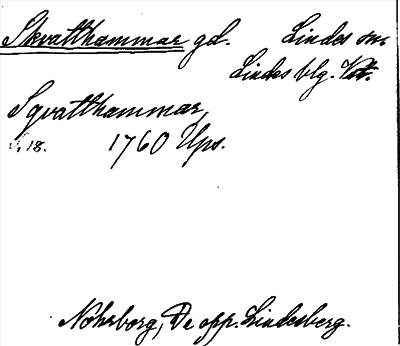 Skvatthammar gd. Lindes sn.
Lindes blg. Vstm.
Sqvatthammar,
s. 18. 1760 Ups.
Nohrborg, De opp. Lindesberg.